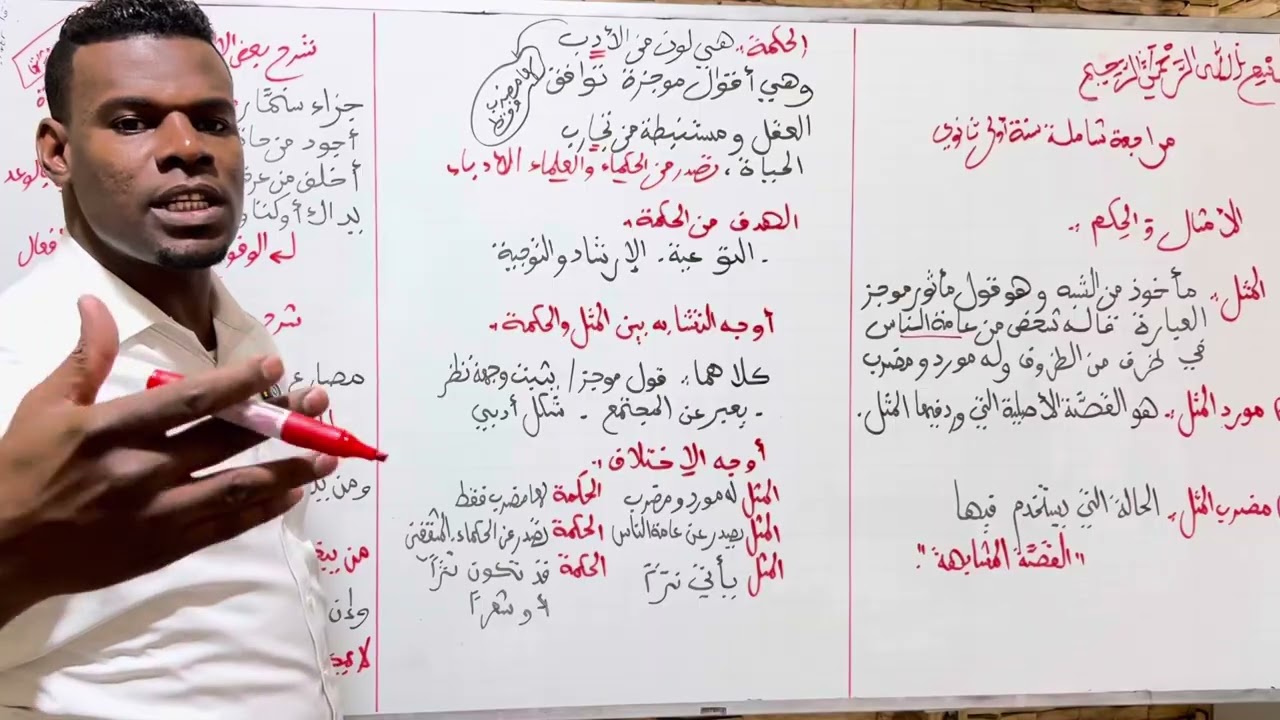 بسم الله الرحمن الرحيم
مراجعة شاملة سنة أولى ثانوي
الأمثال و الحِكم :-
المثل :- مأخوذ من الشبه وهو قول مأثور موجز
العبارة قاله شخص من عامة الناس
في ظرف من الظروف وله مورد ومضرب
مورد المثل :- هو القصّة الأصلية التي ورد فيها المثل .
مضرب المثل :- الحالة التي يستخدم فيها
"القصّة المشابهة".
الحكمة :- هي لون من الأدب
وهي أقوال موجزة توافق
العقل ومستنبطة من تجارب
الحياة ، تصدر من الحكماء والعلماء الأدباء
لها مضرب
فقط
الهدف من الحكمة :-
- التوعية - الإرشاد والتوجية
أوجه التشابه بين المثل والحكمة :-
كلاهما :- قول موجز / يثبت وجهة نظر
- يعبر عن المجتمع - شكل أدبي
أوجه الإختلاف :-
المثل له مورد ومضرب الحكمة لها مضرب فقط
المثل يصدر عن عامة الناس الحكمة تصدر عن الحكماء المثقفين
المثل يأتي نثرًا الحكمة قد تكون نثرًا
أو شعرًا
شرح بعض
جزاء سنمّار
أجود من
أخلف من
بالوعد
يداك أوكتا
مصارع
ومن
من
وإن